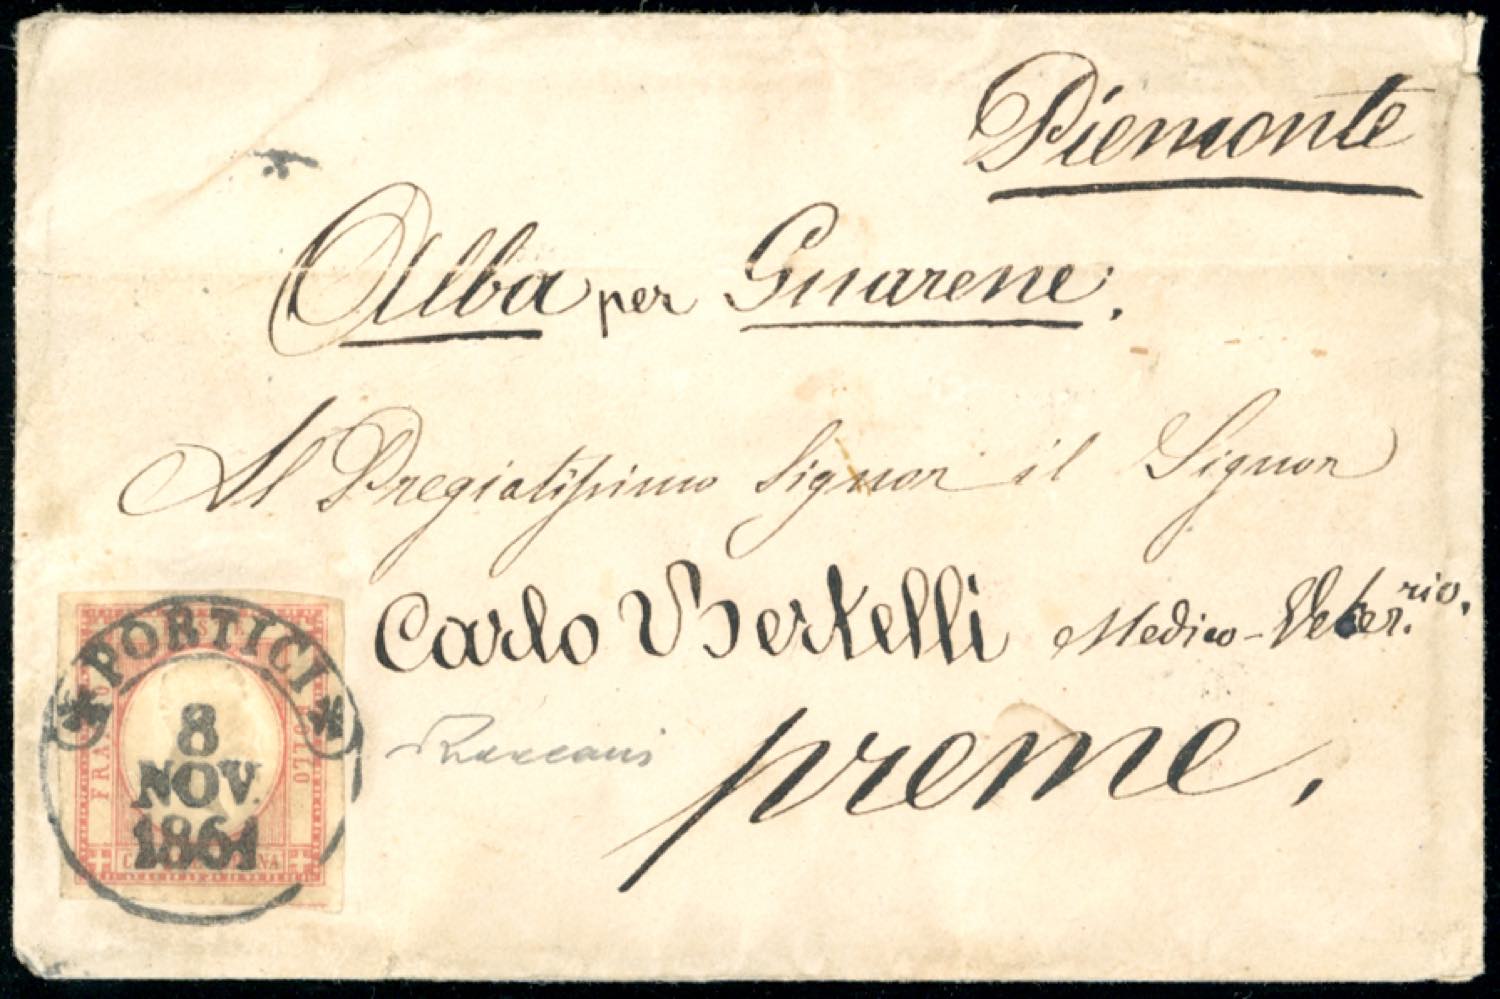 Piemonte
Alba per Guarene.
Al Pregiatissimo Signor il Signor
Carlo Bertelli Medico-Veter.rio.
preme,
PORTICI
8
NOV.
1861